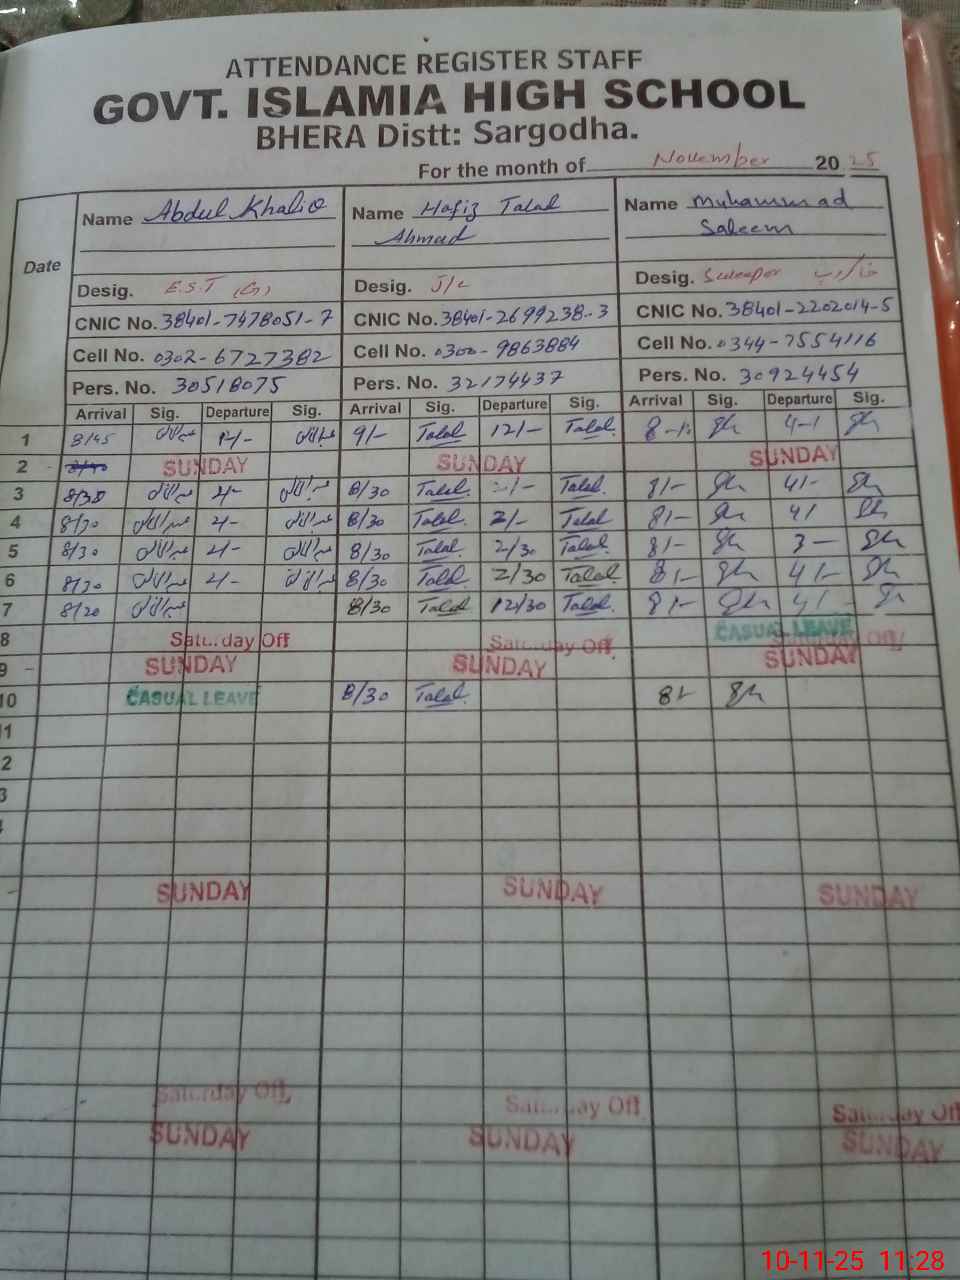 ATTENDANCE REGISTER STAFF
GOVT. ISLAMIA HIGH SCHOOL
BHERA Distt: Sargodha.
For the month of November 2025
Date
Name Abdul Khaliq Name Hafiz Talal Name Muhammad
Ahmad Saleem
Desig. E.S.T (G) Desig. J/C Desig. Sweeper خاکروب
CNIC No. 38401-7478051-7 CNIC No. 38401-2699238-3 CNIC No. 38401-2202014-5
Cell No. 0302-6727382 Cell No. 0300-9863884 Cell No. 0344-7554116
Pers. No. 30518075 Pers. No. 32174437 Pers. No. 30924454
Arrival Sig. Departure Sig. Arrival Sig. Departure Sig. Arrival Sig. Departure Sig.
1 8/45 12/- 9/- Talal 12/- Talal 8-1 4-1
2 SUNDAY SUNDAY SUNDAY
3 8/30 2/- 8/30 Talal 2/- Talal 8/- 4/-
4 8/30 2/- 8/30 Talal 2/- Talal 8/- 4/
5 8/30 2/- 8/30 Talal 2/30 Talal 8/- 3-
6 8/30 2/- 8/30 Talal 2/30 Talal 8/- 4/-
7 8/20 8/30 Talal 12/30 Talal 8/- 4/-
8 Saturday Off Saturday Off CASUAL LEAVE Saturday Off
9 SUNDAY SUNDAY SUNDAY
10 CASUAL LEAVE 8/30 Talal 8/-
11
2
3
SUNDAY SUNDAY SUNDAY
Saturday Off Saturday Off Saturday Off
SUNDAY SUNDAY SUNDAY
10-11-25 11:28